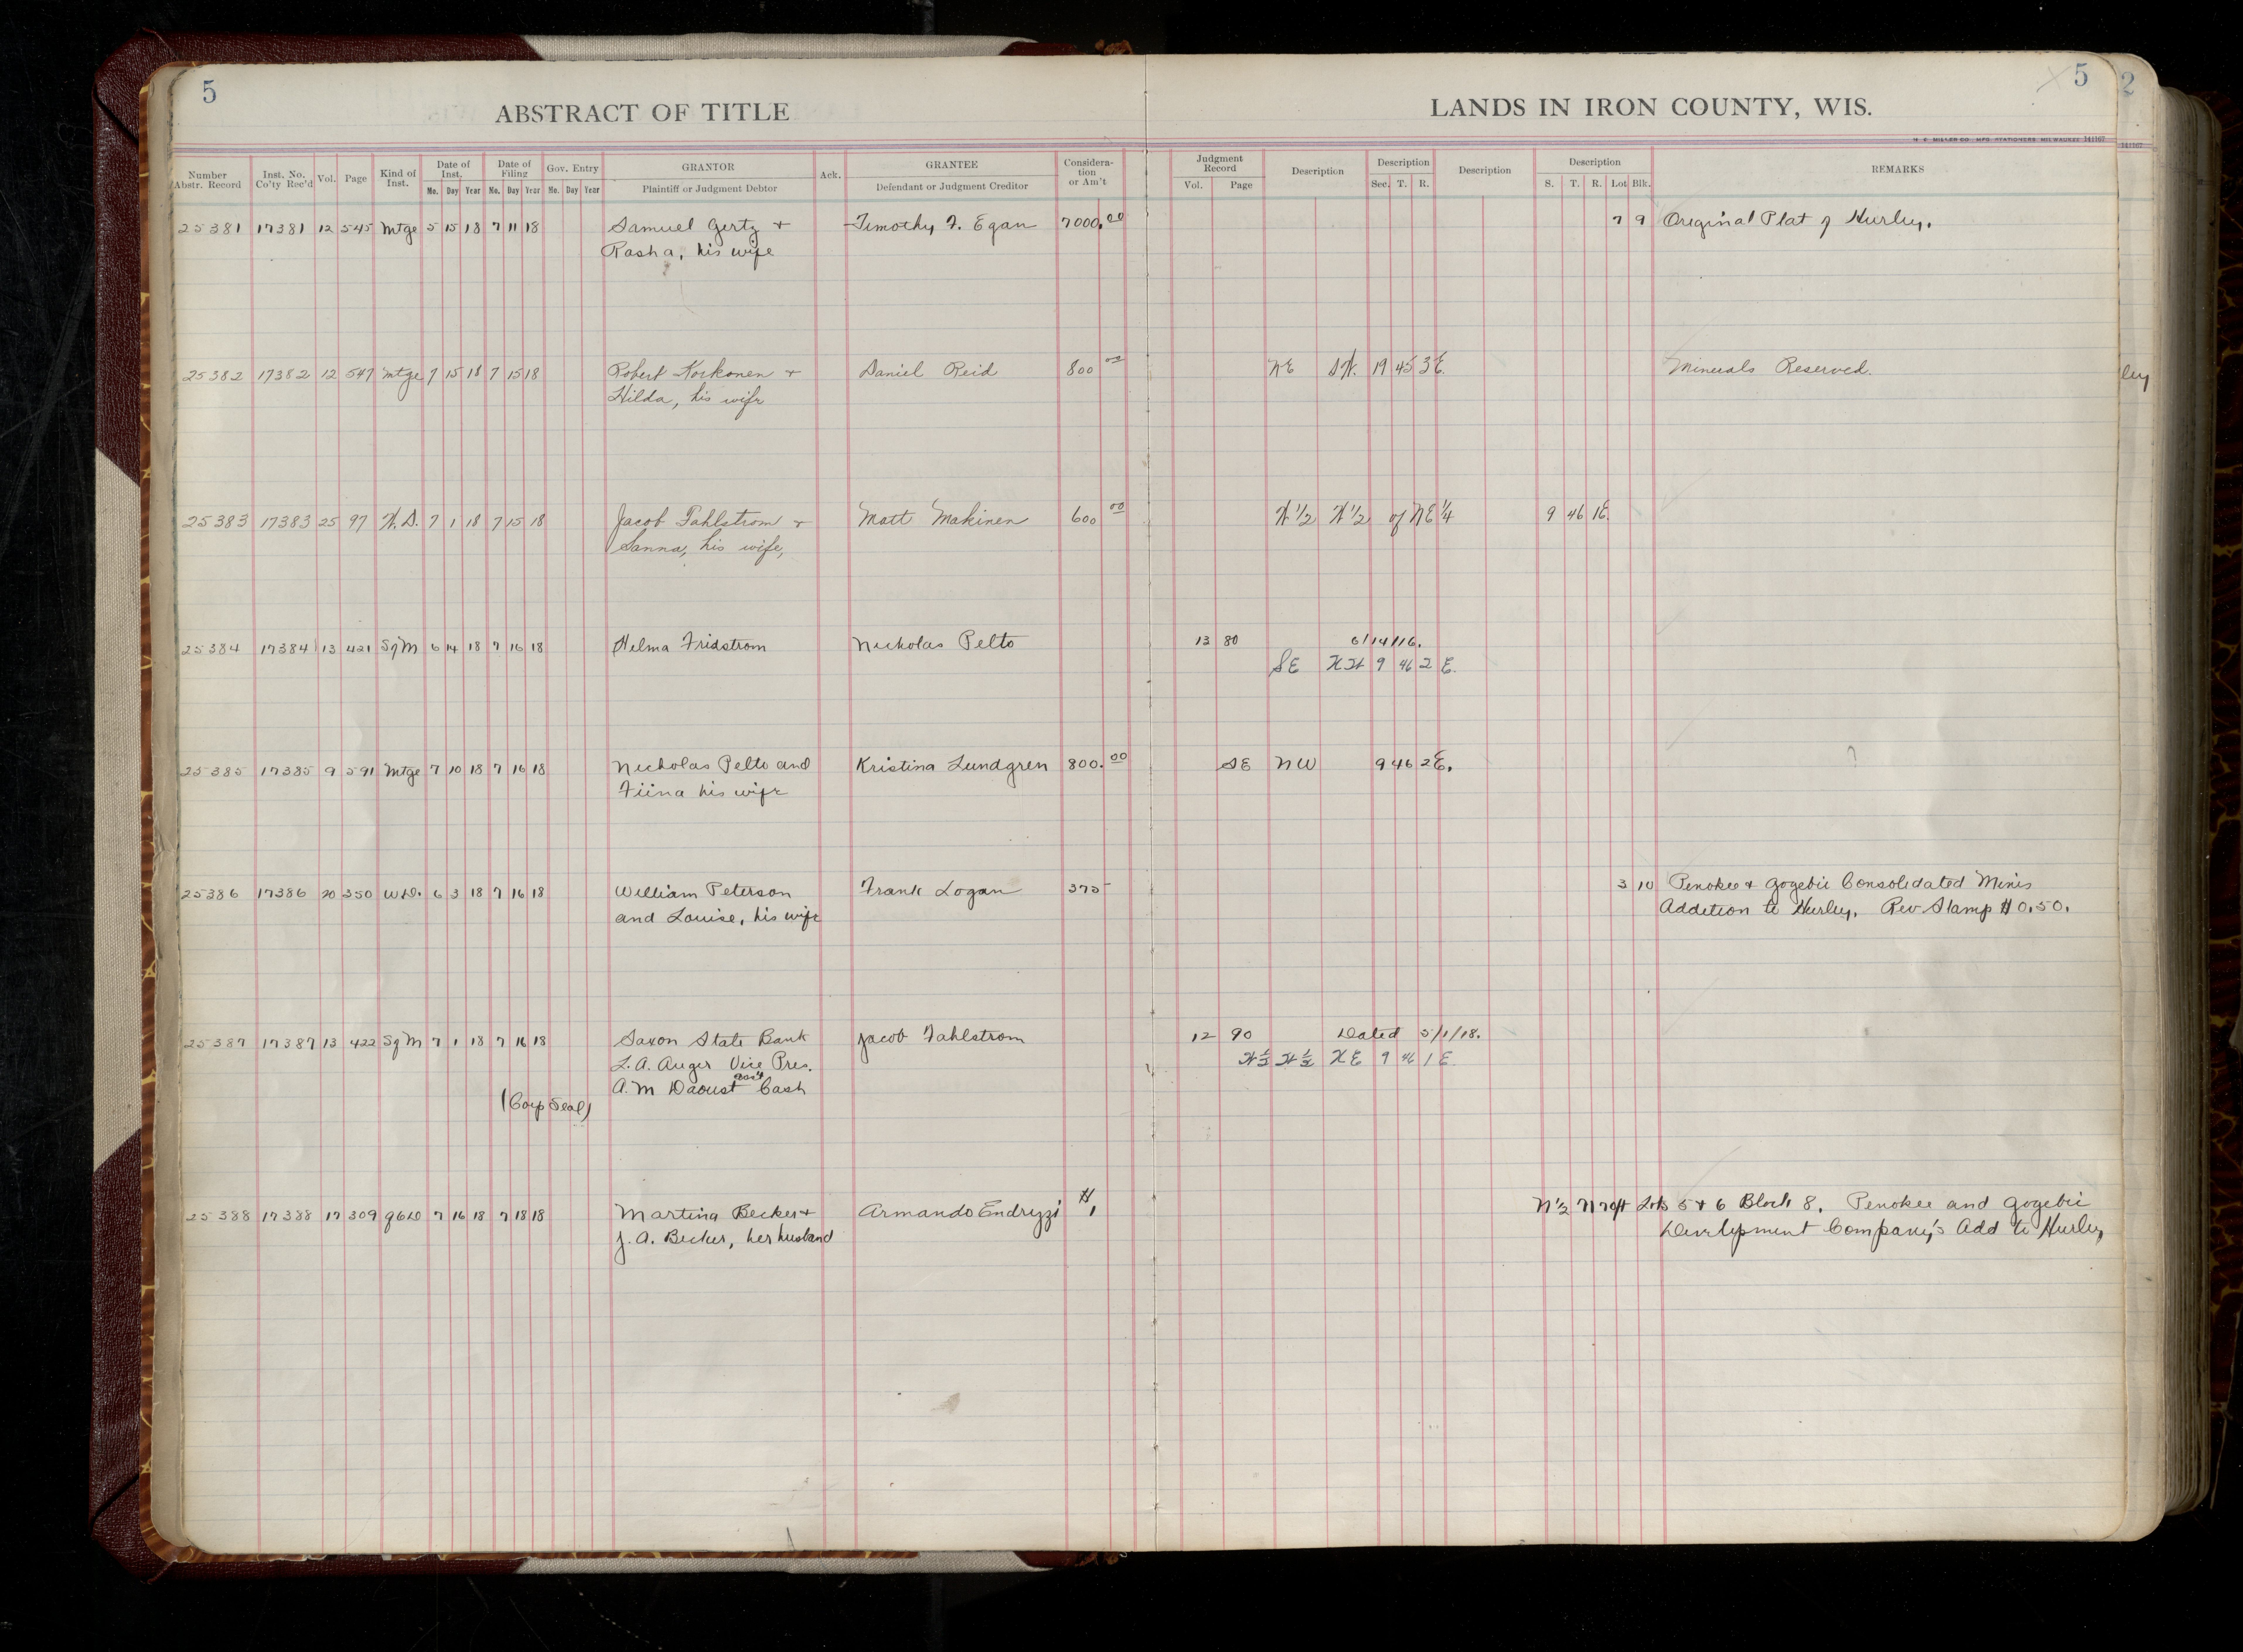 5
5
2
ABSTRACT OF TITLE
LANDS IN IRON COUNTY, WIS.
H. C. MILLER CO. MFG. STATIONERS MILWAUKEE 141167
141167
Number Abstr. Record Inst. No. Co'ty Rec'd Vol. Page Kind of Inst. Date of Inst. Mo. Day Year Date of Filing Mo. Day Year Gov. Entry Mo. Day Year GRANTOR Plaintiff or Judgment Debtor Ack. GRANTEE Defendant or Judgment Creditor Considera-tion or Am't Judgment Record Vol. Page Description Description Sec. T. R. Description Description S. T. R. Lot Blk. REMARKS
25381 17381 12 545 Mtge 5 15 18 7 11 18 Samuel Gertz + Timothy F. Egan 7000.00 7 9 Original Plat of Hurley.
Rasha, his wife
25382 17382 12 547 Mtge 7 15 18 7 15 18 Robert Korkonen + Daniel Reid 800 00 NE SW. 19 45 3E. Minerals Reserved.
Hilda, his wife
ley
25383 17383 25 97 W.D. 7 1 18 7 15 18 Jacob Fahlstrom + Matt Makinen 600 00 W 1/2 W 1/2 of NE 1/4 9 46 1E.
Sanna, his wife,
25384 17384 13 421 Sg M 6 14 18 7 16 18 Helma Fridstrom Nickolas Pelto 13 80 6/14/16.
SE NW 9 46 2 E.
25385 17385 9 591 Mtge 7 10 18 7 16 18 Nicholas Pelto and Kristina Lundgren 800.00 SE NW 9 46 2E.
Fiina his wife
25386 17386 20 350 W.D. 6 3 18 7 16 18 William Peterson Frank Logan 375- 3 10 Penokee + Gogebic Consolidated Mines
and Louise, his wife Addition to Hurley, Rev Stamp $0.50.
25387 17387 13 422 Sg M 7 1 18 7 16 18 Saxon State Bank Jacob Fahlstrom 12 90 Dated 5/1/18.
L. A. Auger Vice Pres. W 1/2 W 1/2 NE 9 46 1 E
A. M Daoust Ass't Cash
(Corp Seal)
25388 17388 17 309 Q C D 7 16 18 7 18 18 Martina Becker + Armando Endrizzi $1 N 1/2 N 70ft Lots 5 + 6 Block 8. Penokee and Gogebic
J. A. Becker, her husband Development Company's Add to Hurley